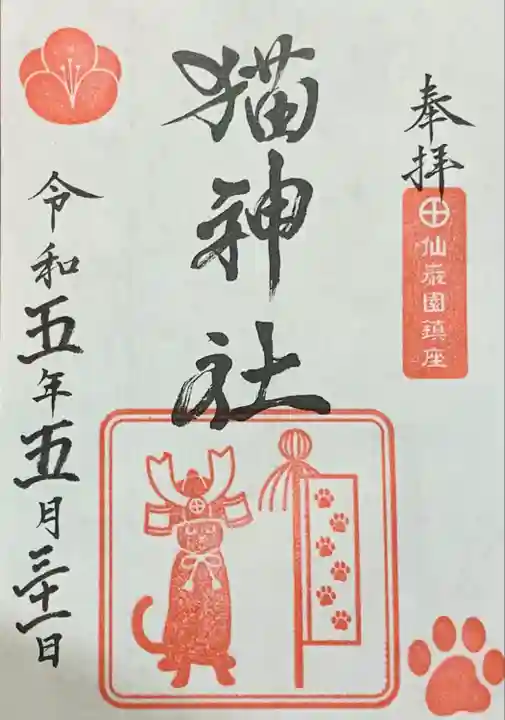 奉拝
仙巌園鎮座
猫神社
令和五年五月三十一日